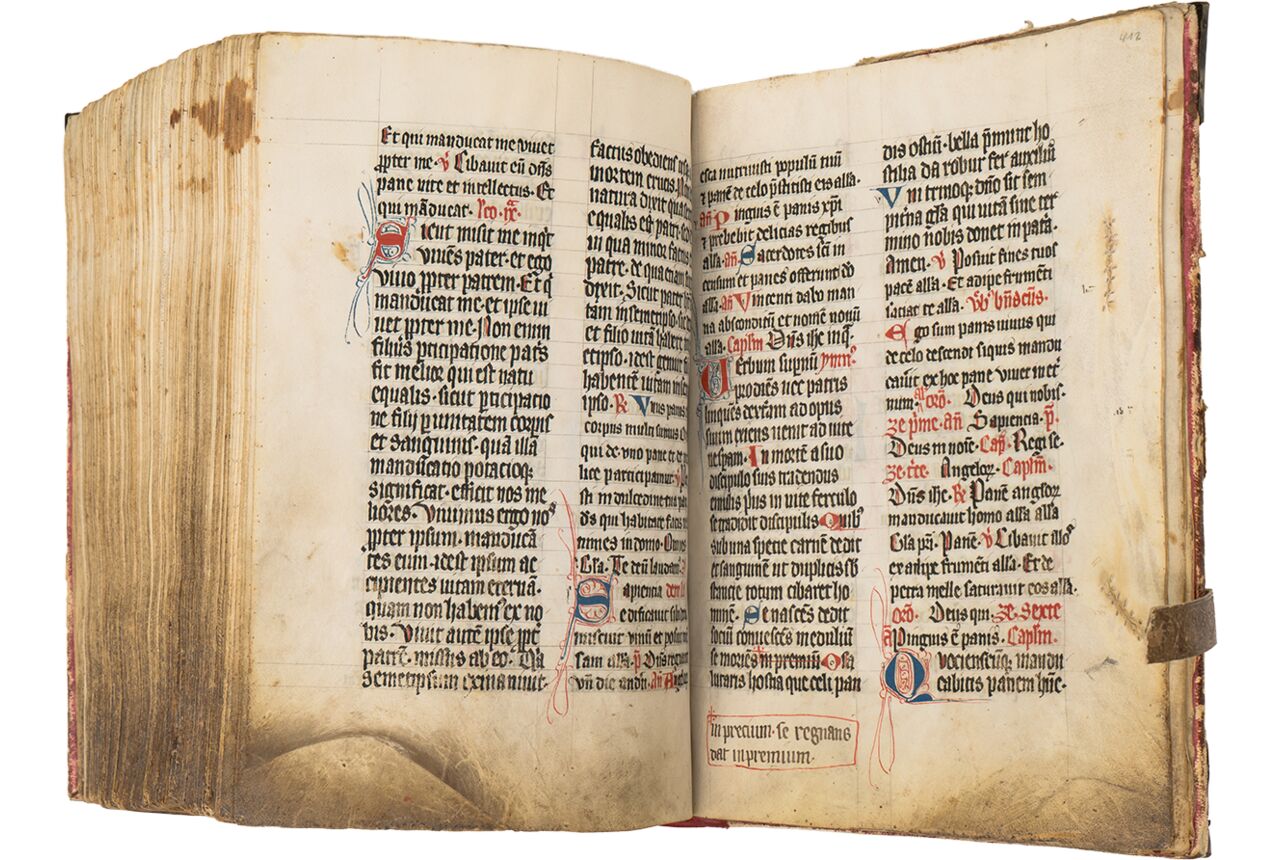 412
Et qui manducat me vivet
ꝓpter me · v̄ Cibavit eū dn̄s
pane vite et intellectus · Et
qui māducat · lc̄o · ix̄·
Sicut misit me inq̄t
vivēs pater · et ego
vivo ꝓpter patrem · Et q̄
manducat me et ipse vi
vet ꝓpter me · Non enim
filius ꝑticipatione patris
fit melior qui est natus
equalis · sicut ꝑticipatio
ne filij ꝑ unitatem corꝑis
et sanguinis · quā illa
manducatio potatioqꝫ
significat · efficit nos me
liores · Vivimus ergo nos
ꝓpter ipsum · manducā
tes eum · idest ipsum ac
cipientes vitam eternā·
quam non habemꝰ ex no
bis · Vivit autē ipse ꝓpt̄
patrē · missus ab eo · Qa
semetipsum exinanivit·
factus obediens
mortem crucis ·
natura dixit qua
equalis est patri ·
in qua minor factus
patre · de qua etiam
dixit · Sicut pater
tam in semetipso ·
et filio vitā habere
etipso · idest genuit
habentē vitam
ipso · R̄ Vnus panis
corpus multi sumus
qui de uno pane et de
lice participamur ·
sti in dulcedine tua
dꝰs qui habitare facis
nimes in domo ·
Gl̄a · Te deū laudamꝰ
Sapiencia
edificavit sibi
miscuit vinū et posuit
sam all̄a · p̄ Dn̄s
vn̄ die
esca nutrivisti populū tuū
⁊ panē de celo p̄stitisti eis all̄a·
an̄ Pinguis ē panis xp̄i
⁊ prebebit delicias regibus
all̄a · an̄ Sacerdotes sc̄i in
censum et panes offerunt dō
all̄a · an̄ Vincenti dabo man
na absconditū et nomē novū
all̄a · Capl̄m Dn̄s ih̄c in q̄·
Verbum supnū ymn̄·
prodiēs nec patris
linquēs dextram ad opus
suum exiens venit ad vite
vespam · In mortē a suo
discipulo suis tradendus
emulis prius in vite ferculo
se tradidit discipulis Quibꝰ
sub una specie carnē dedit
et sanguinē ut duplicis sb̄
stancie totum cibaret ho
minē · Se nascēs dedit
sociū convescēs in eduliū
se moriēs in premiū O sa
lutaris hostia que celi pan
in precium · se regnans
dat in premium·
dis ostiū · bella p̄munt ho
stilia da robur fer auxiliū
Vni trinoqꝫ dn̄o sit sem
pit̄na gl̄a qui vitā sine ter
mino nobis donet in patā·
Amen · v̄ Posuit fines tuos
pacē all̄a · Et adipe frumēti
saciat te all̄a · Bn̄dictus·
Ego sum panis vivus qui
de celo descendi siquis mandu
cavit ex hoc pane vivet in et̄
num · or̄o · Deus qui nobis·
ze prime · an̄ Sapiencia · p̄
Deus in noīe · Cap̄ · Regi se·
ze · t̄cie · Angeloꝝ · Capl̄m·
Dn̄s ih̄c · R̄ Panē angeloꝝ
manducavit homo all̄a all̄a
Gl̄a pr̄i · Panē · v̄ Cibavit illoꝰ
ex adipe frumēti all̄a · Et de
petra melle saturavit eos all̄a·
or̄o · Deus qui · ze · Sexte
a Pinguis ē panis · Capl̄m·
Quociescūqꝫ mandu
cabitis panem hūc·